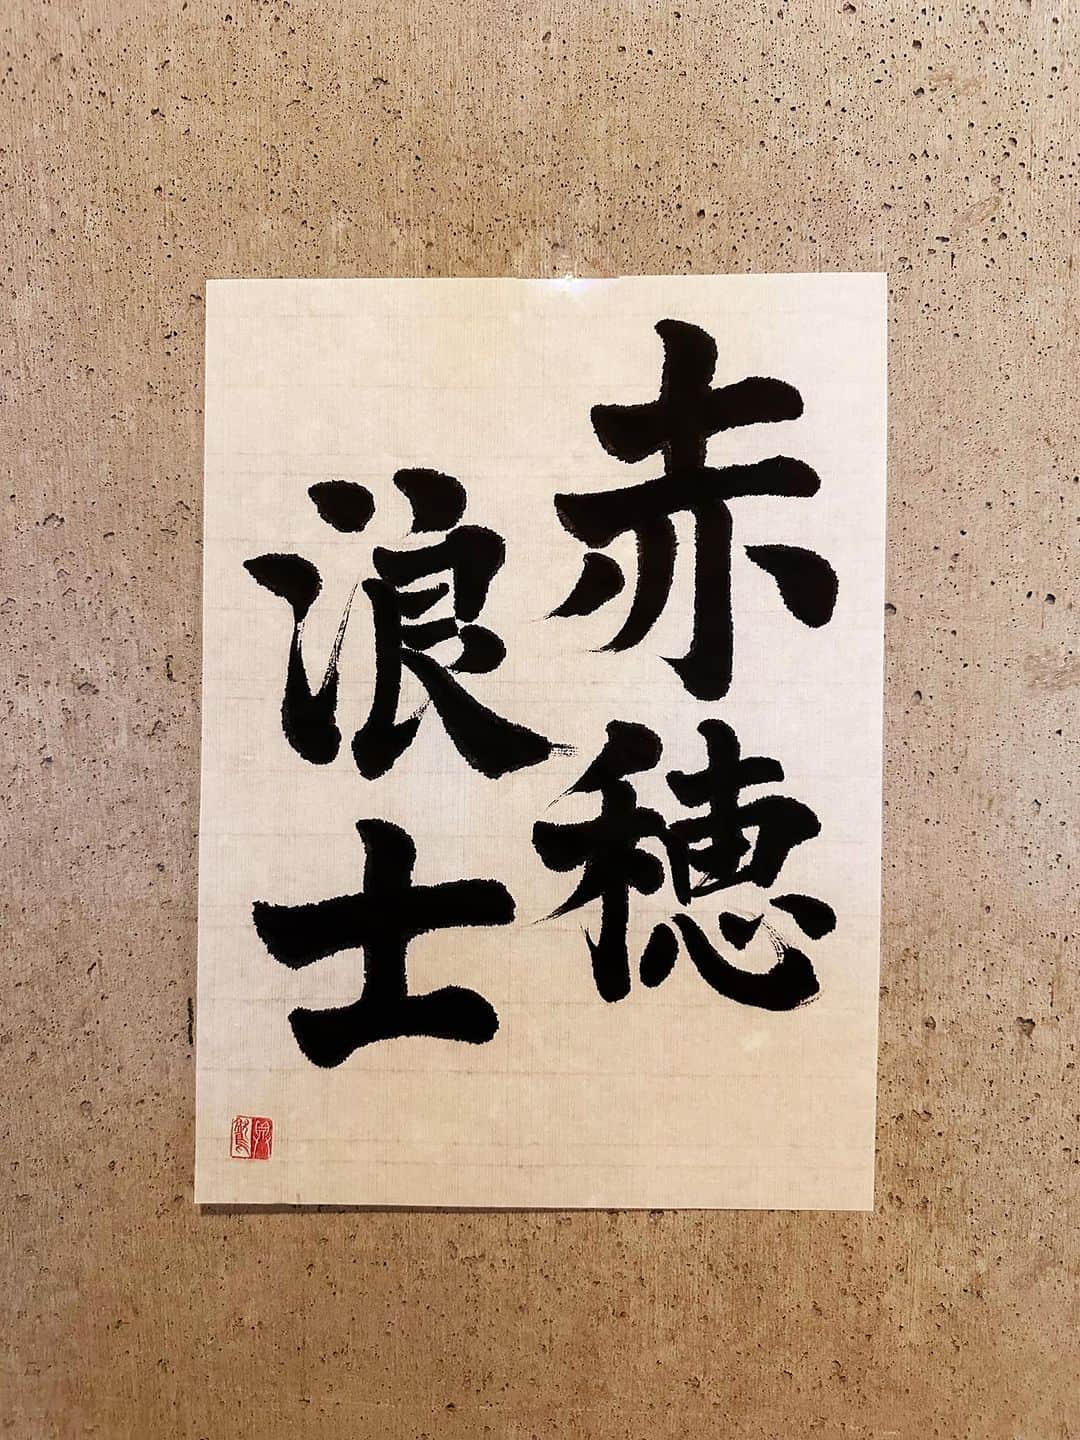 赤穂
浪士